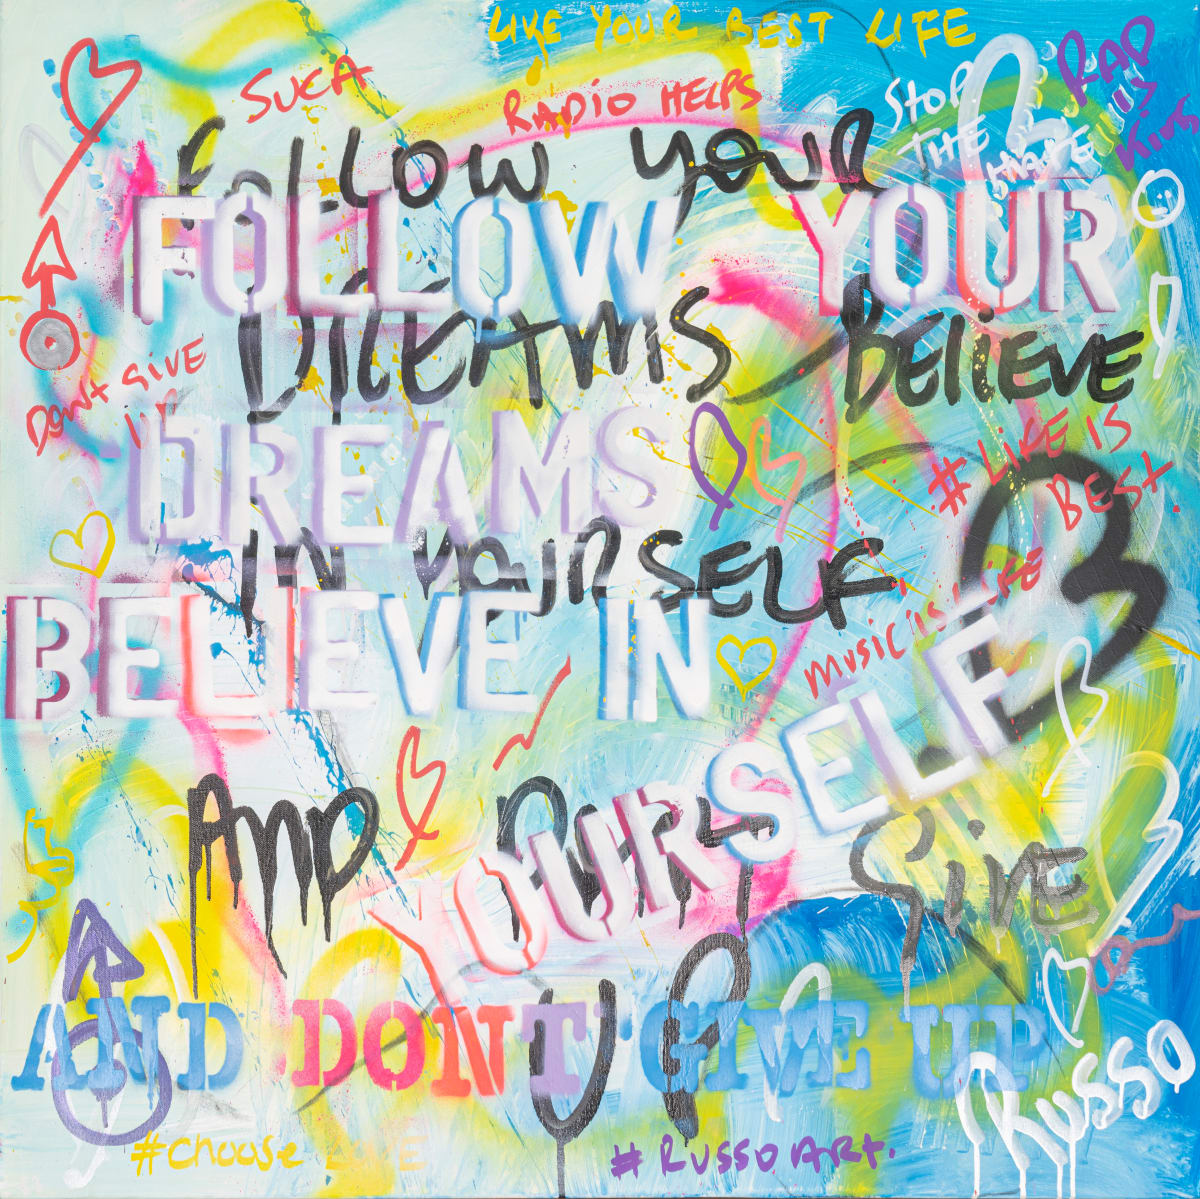 LIVE YOUR BEST LIFE
SUCA
RADIO HELPS
STOP
THE
RAP
IS
KING
FOLLOW YOUR
FOLLOW YOUR
DREAMS BELIEVE
DON'T GIVE
UP
DREAMS
# LIFE IS
BEST.
IN YOURSELF
BELIEVE IN
MUSIC IS LIFE
YOURSELF
AND DON'T GIVE
AND DON'T GIVE UP
UP
RUSSO
#CHOOSE LOVE
# RUSSO ART.